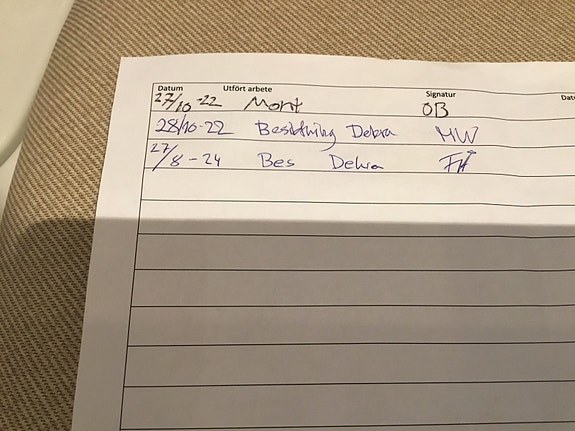 Datum Utfört arbete Signatur Dat
27/10-22 Mont OB
28/10-22 Besiktning Dekra MW
27/8-24 Bes Dekra FH